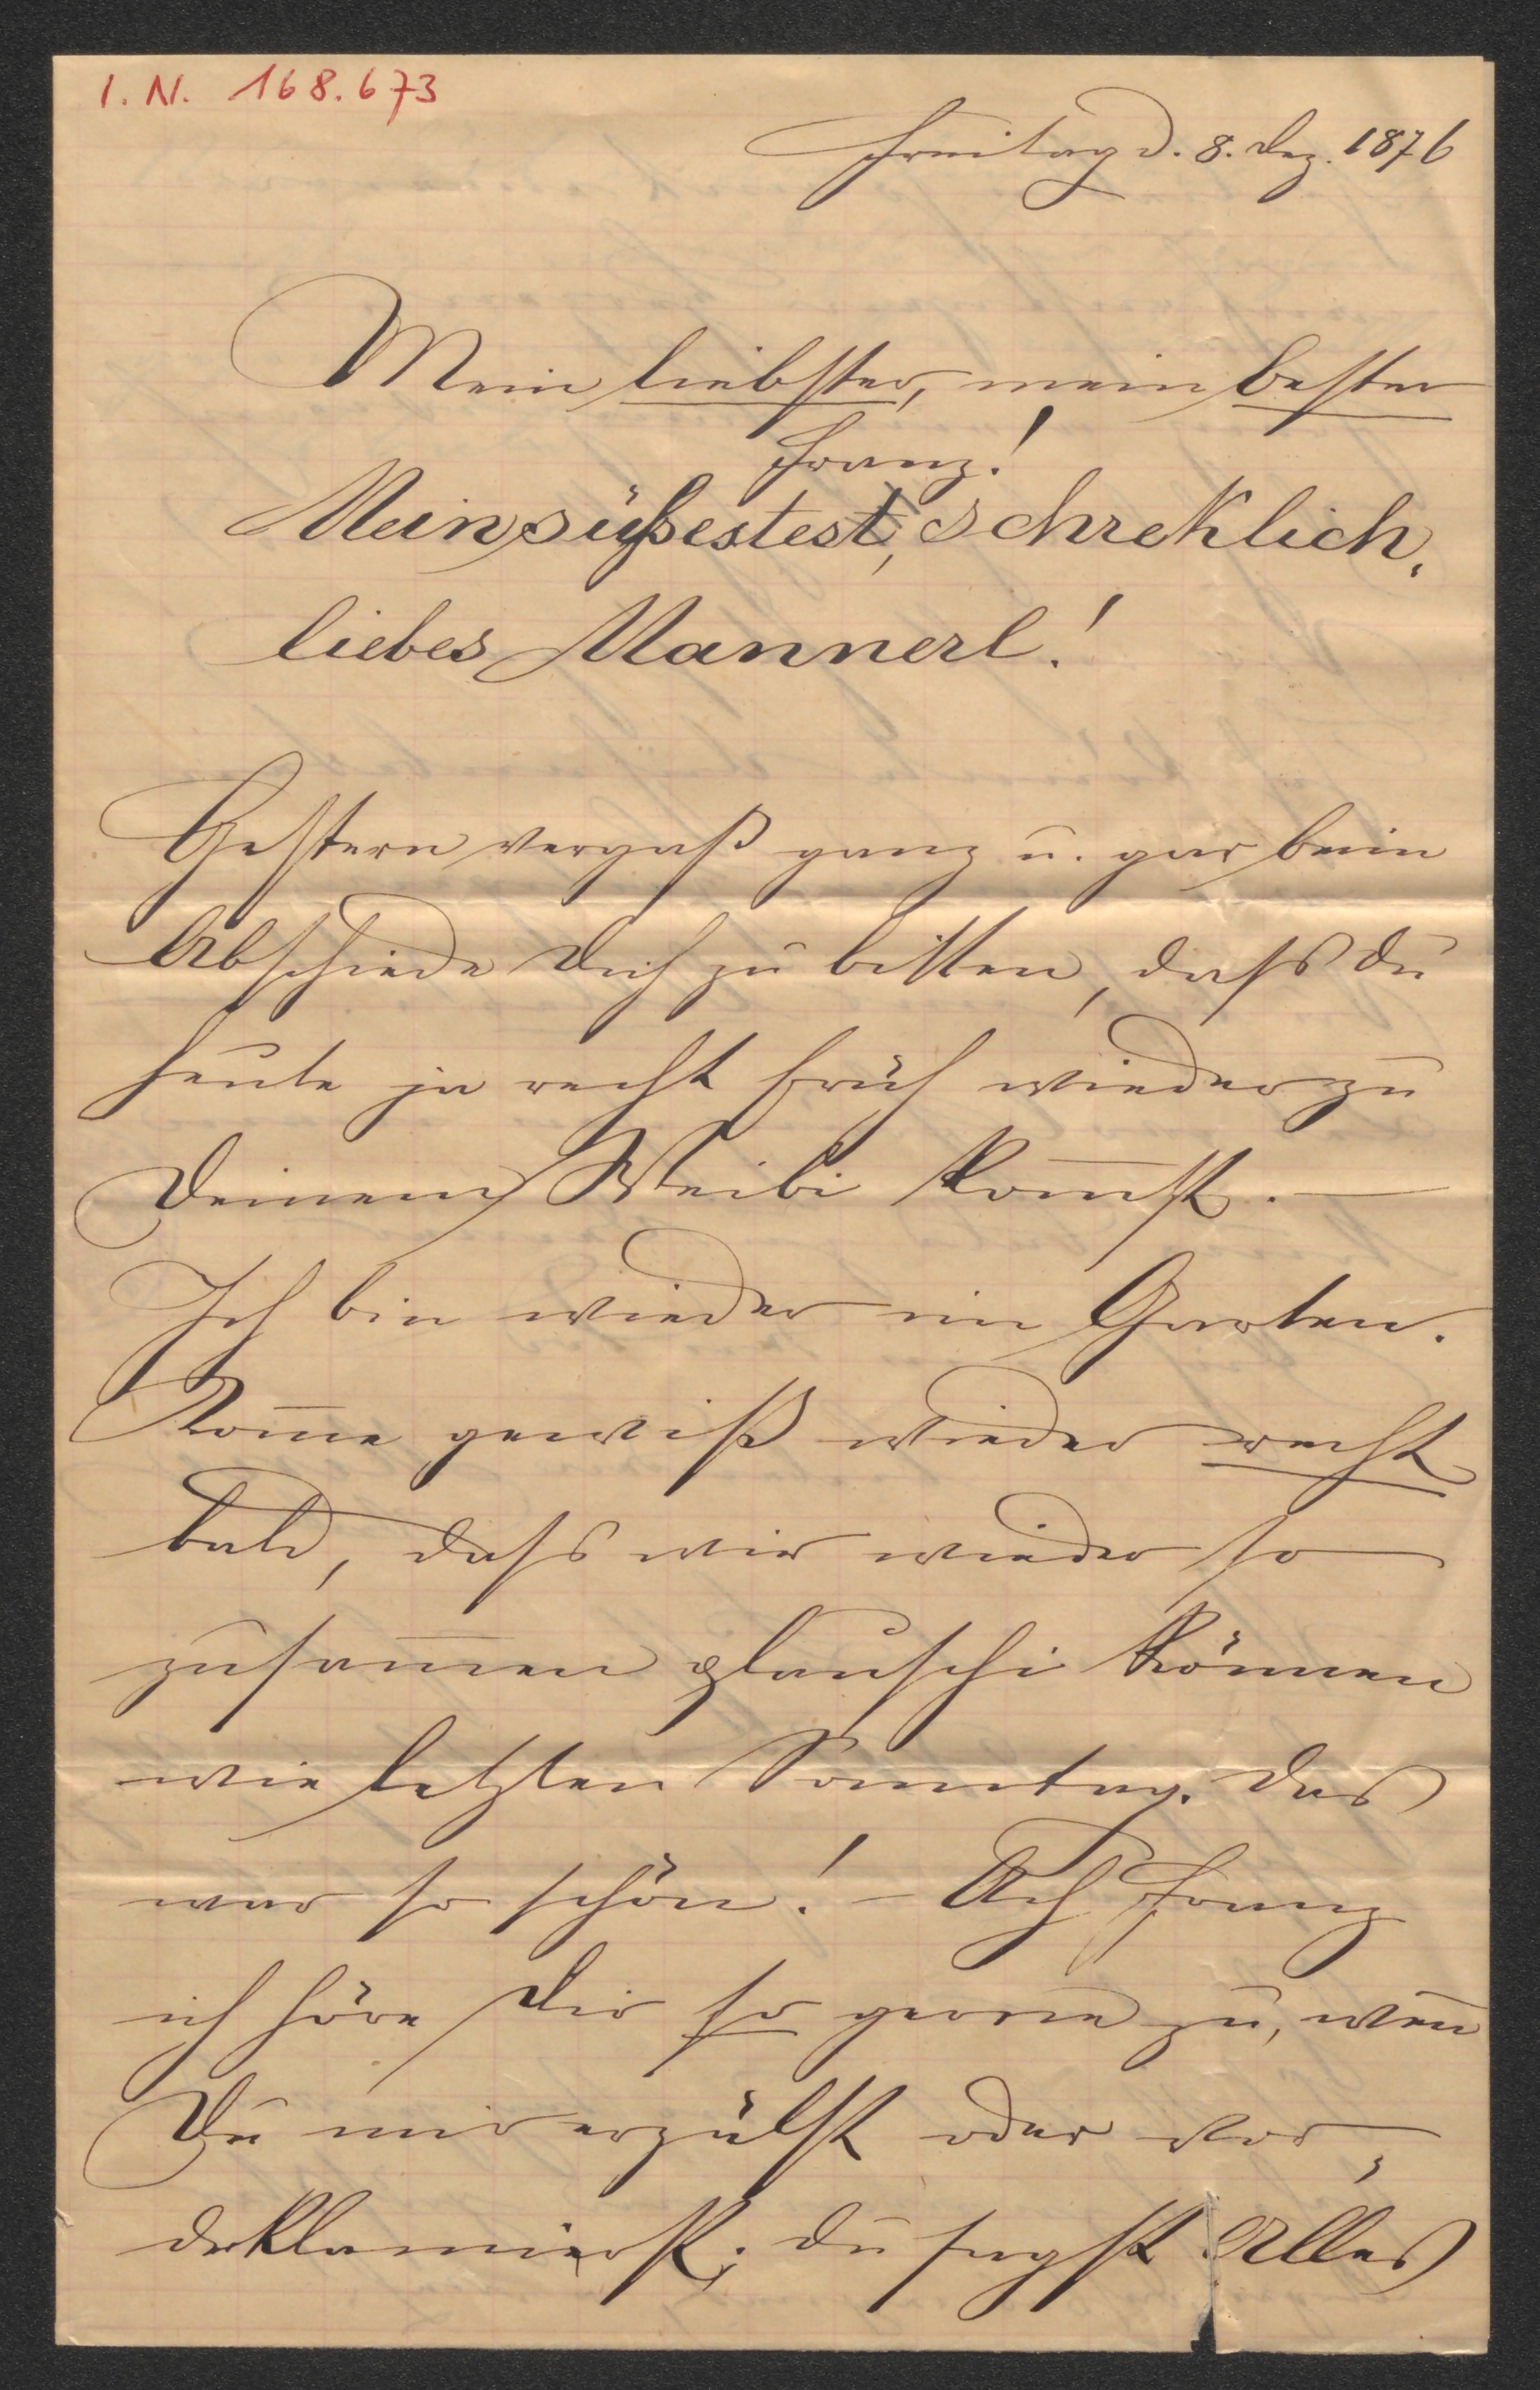 I. N. 168.673
Freitag d. 8. Dez. 1876
Mein liebster, mein bester
Franz!
Mein süßestest, schreklich,
liebes Mannerl!
Gestern vergaß ganz u. gar beim
Abschiede Dich zu bitten, dass du
heute ja recht früh wieder zu
Deinem Weibi kom̅st. —
Ich bin wieder im Garten.
Kom̅e gewiß wieder recht
bald, dass wir wieder so
zusam̅en plauschi können
wie letzten Sonntag. Das
war so schön! – Ach Franz
ich höre Dir so gerne zu, wen̅
Du mir erzälst oder vor,
deklamierst; du sagst Alles